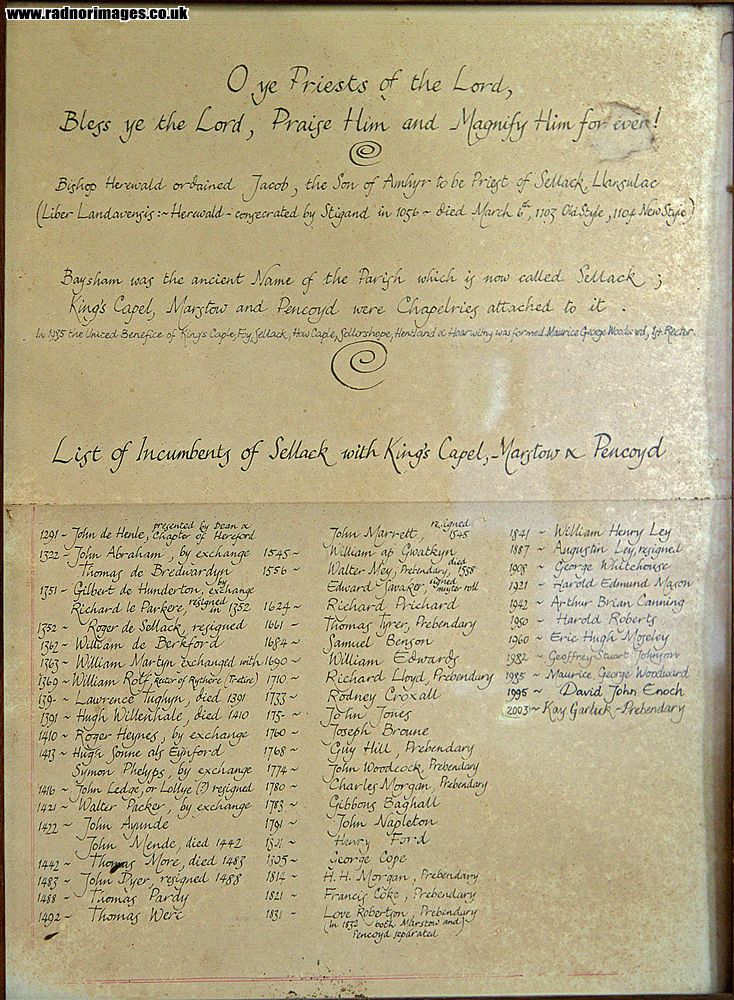 www.radnorimages.co.uk
O ye Priests of the Lord,
Bless ye the Lord, Praise Him and Magnify Him for ever!
Bishop Herewald ordained Jacob, the Son of Amhyr to be Priest of Sellack, Llansulac
(Liber Landavensis :~ Herewald ~ consecrated by Stigand in 1056 ~ died March 6th, 1103 Old Style, 1104 New Style)
Baysham was the ancient Name of the Parish which is now called Sellack ;
King's Capel, Marstow and Pencoyd were Chapelries attached to it .
In 1985 the United Benefice of King's Caple, Foy, Sellack, How Caple, Sollershope, Hentland & Hoarwithy was formed Maurice George Woodward, 1st. Rector.
List of Incumbents of Sellack with King's Capel, Marstow & Pencoyd
1291 ~ John de Henle, presented by Dean & Chapter of Hereford
1322 ~ John Abraham, by exchange
Thomas de Bredwardyn
1351 ~ Gilbert de Hunderton, by exchange
Richard le Parkere, resigned in 1352
1352 ~ Roger de Sellack, resigned
1362 ~ William de Berkford
1363 ~ William Martyn exchanged with
1369 ~ William Rolf, Rector of Rythore (Tretire)
139- ~ Lawrence Tughyn, died 1391
1391 ~ Hugh Willenhale, died 1410
1410 ~ Roger Heynes, by exchange
1413 ~ Hugh Sonne als Eynford
Symon Phelyps, by exchange
1416 ~ John Ledge, or Lollye (?) resigned
1421 ~ Walter Packer, by exchange
1422 ~ John Ayunde
John Mende, died 1442
1442 ~ Thomas More, died 1483
1483 ~ John Dyer, resigned 1488
1488 ~ Thomas Pardy
1492 ~ Thomas Were
John Marrett, resigned 1545
1545 ~ William ap Gwatkyn
1556 ~ Walter Mey, Prebendary, died 1558
Edward Swaker, signed muster roll
1624 ~ Richard Prichard
1661 ~ Thomas Tyrer, Prebendary
1684 ~ Samuel Benson
1690 ~ William Edwards
1710 ~ Richard Lloyd, Prebendary
1733 ~ Rodney Croxall
175- ~ John Jones
1760 ~ Joseph Broune
1768 ~ Guy Hill, Prebendary
1774 ~ John Woodcock, Prebendary
1780 ~ Charles Morgan, Prebendary
1783 ~ Gibbons Baghall
1791 ~ John Napleton
1801 ~ Henry Ford
1805 ~ George Cope
1814 ~ H. H. Morgan, Prebendary
1821 ~ Francis Coke, Prebendary
1831 ~ Love Robertson, Prebendary
(in 1832 both Marstow and
Pencoyd separated)
1841 ~ William Henry Ley
1887 ~ Augustin Ley, resigned
1908 ~ George Whitehouse
1921 ~ Harold Edmund Mason
1942 ~ Arthur Brian Canning
1950 ~ Harold Roberts
1960 ~ Eric Hugh Moseley
1982 ~ Geoffrey Stuart Johnson
1985 ~ Maurice George Woodward
1995 ~ David John Enoch
2003 ~ Kay Garlick ~ Prebendary